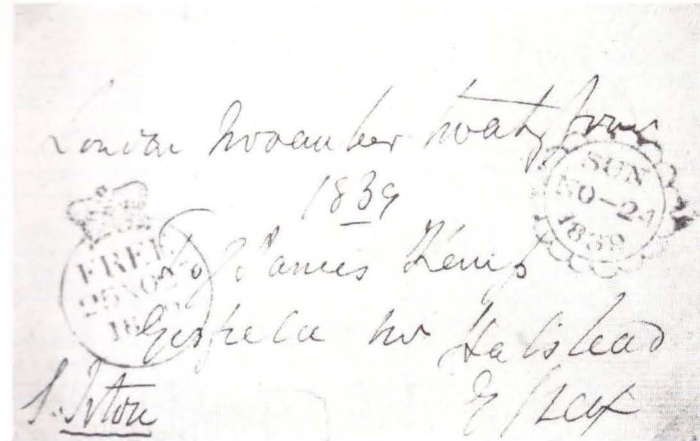 London November twenty four
1839
SUN
NO-24
1839
FREE
25 NO 25
To James Kemp
Gosfield Nr Halstead
Essex